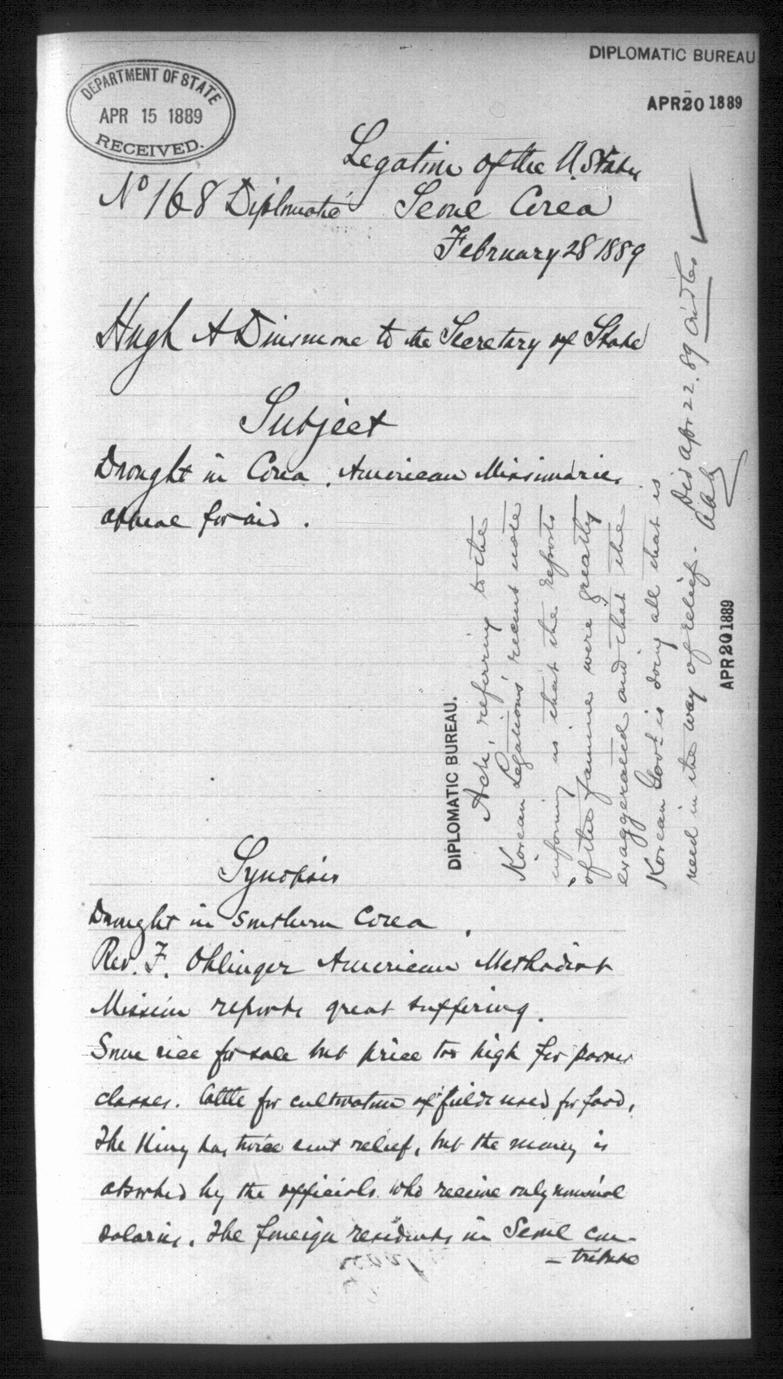 DIPLOMATIC BUREAU
APR 20 1889
DEPARTMENT OF STATE
APR 15 1889
RECEIVED.
Legation of the U. States
No 168 Diplomatic Seoul Corea
February 28 1889
Hugh A Dinsmore to the Secretary of State
Subject
Drought in Corea. American Missionaries
appeal for aid.
DIPLOMATIC BUREAU.
Ack, referring to the
Korean Legation's recent note
informing us that the reports
of the famine were greatly
exaggerated and that the
Korean Gov't is doing all that is
need in the way of relief.
Apr 22. 89
AAA
APR 20 1889
Synopsis
Drought in southern Corea.
Rev. F. Ohlinger American Methodist
Mission reports great suffering.
Some rice for sale but price too high for poorer
classes. Cattle for cultivation of fields used for food,
The King has twice sent relief, but the money is
absorbed by the officials who receive only nominal
salaries. The foreign residents in Seoul con-
-tribute